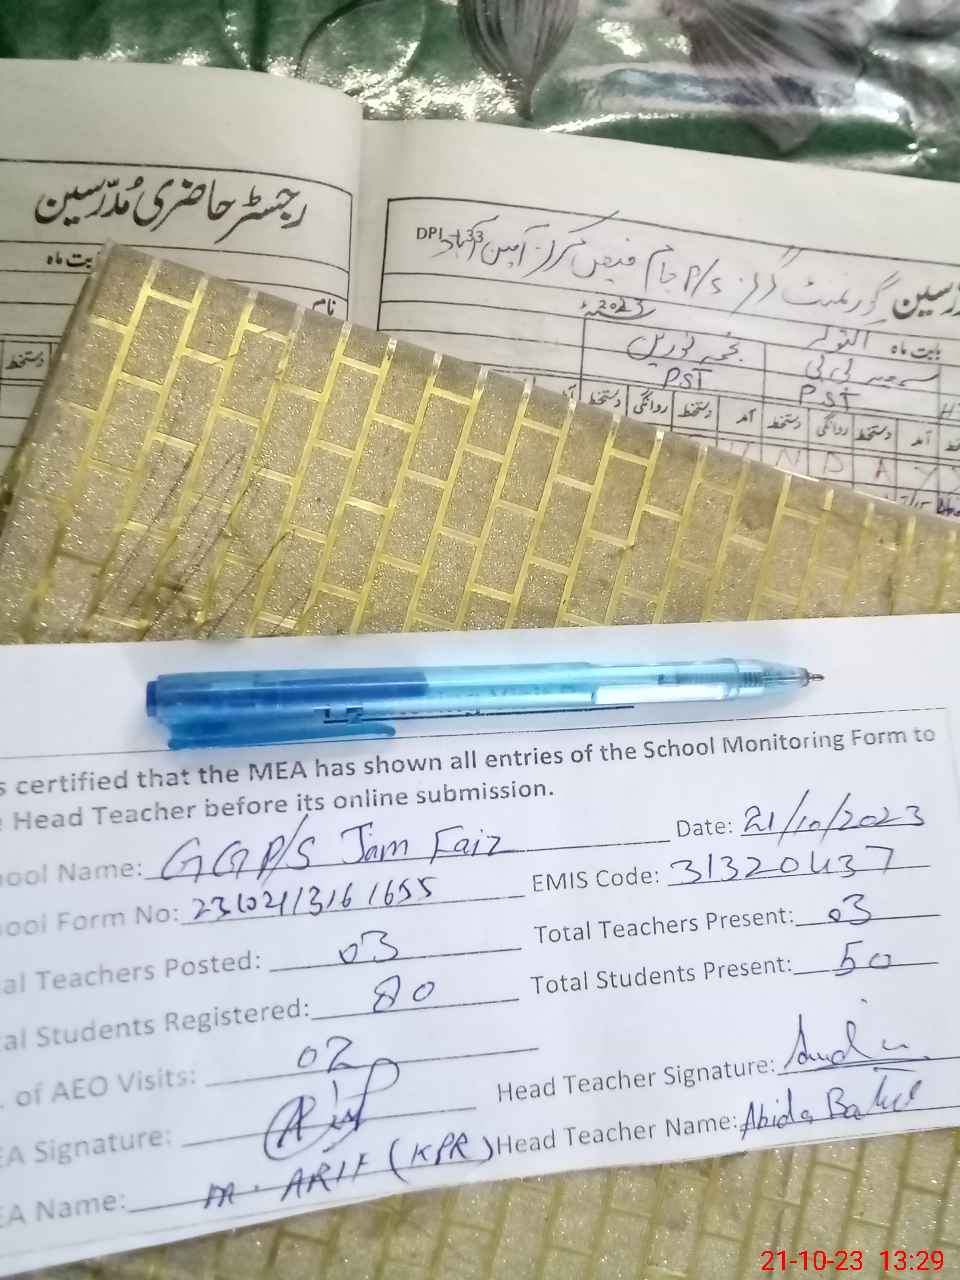 رجسٹر حاضری مُدّرسین
بابت ماہ
نام
دستخط
DPI-33
گورنمنٹ گرلز P/S جام فیض
2023
بابت ماہ اکتوبر
PST PST
دستخط روانگی دستخط آمد دستخط روانگی دستخط آمد
s certified that the MEA has shown all entries of the School Monitoring Form to
e Head Teacher before its online submission.
hool Name: GGP/S Jam Faiz Date: 21/10/2023
hool Form No: EMIS Code: 31320437
al Teachers Posted: 03 Total Teachers Present: 03
al Students Registered: 80 Total Students Present: 50
. of AEO Visits: 02
EA Signature: Head Teacher Signature:
EA Name: M. ARIF (KPR) Head Teacher Name: Abida Batul
21-10-23 13:29